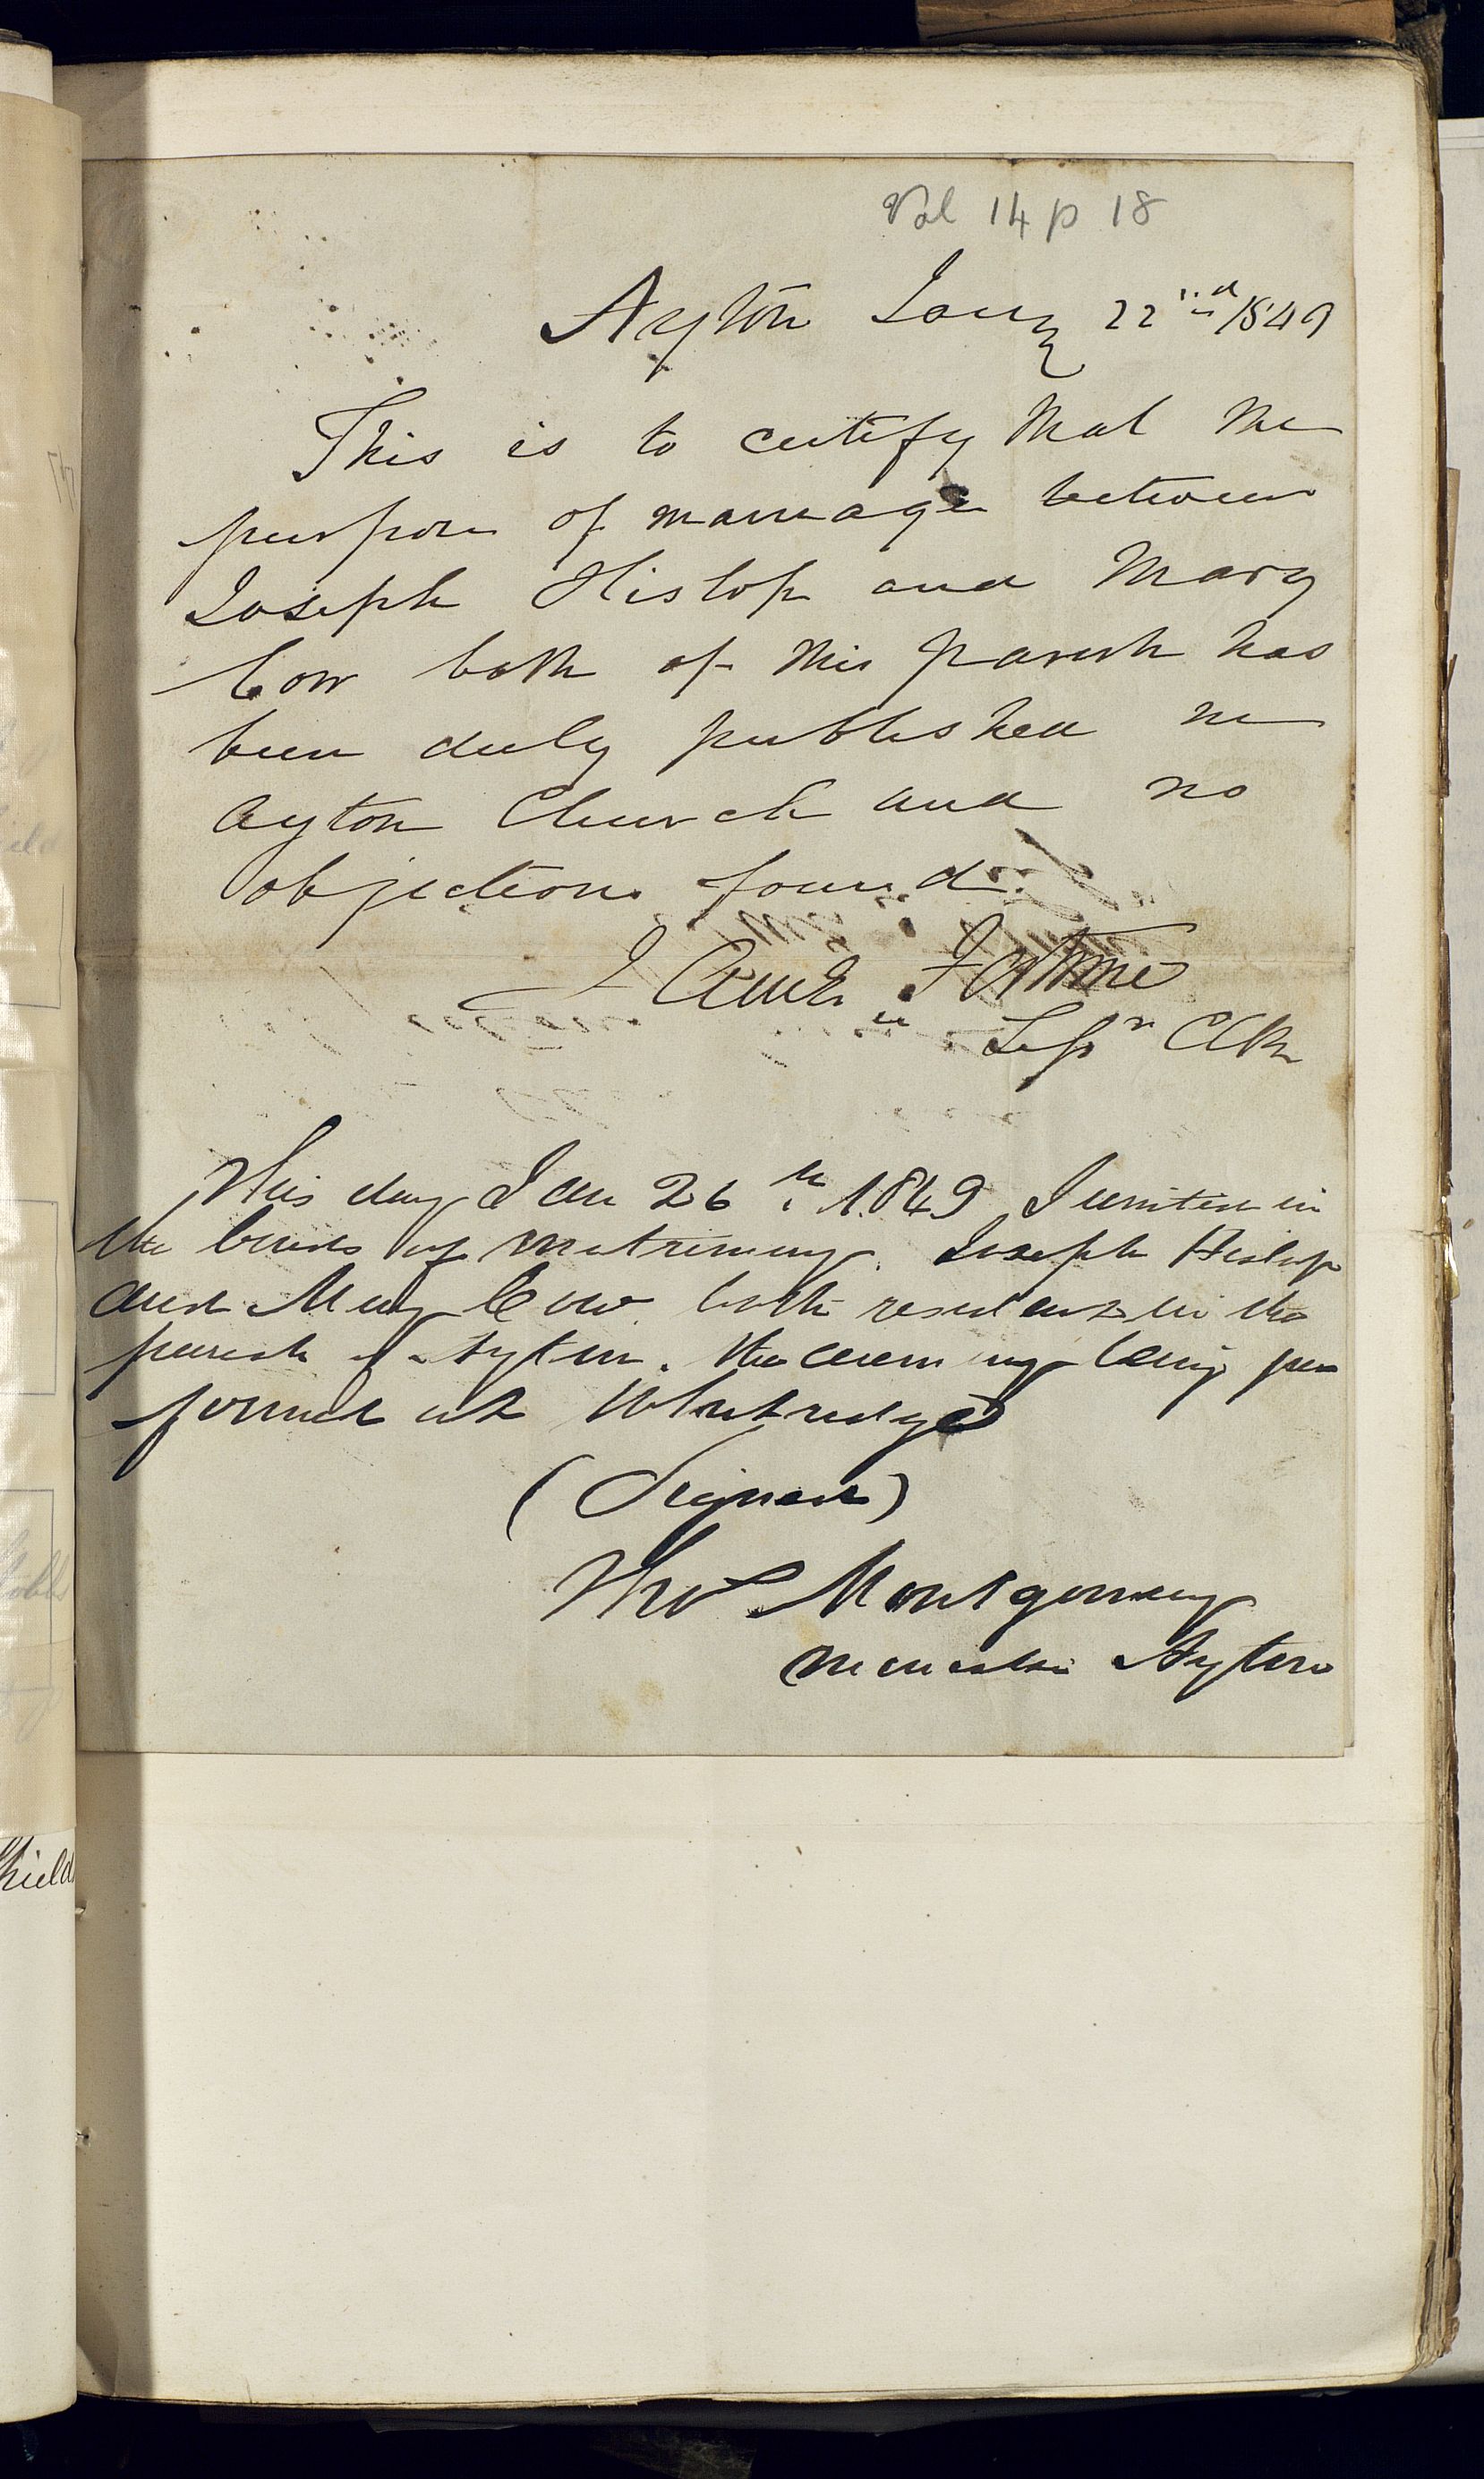 Vol 14 p 18
Ayton Jany 22nd 1849
This is to certify that the
purpose of marriage between
Joseph Hislop and Mary
Cow both of this parish has
been duly published in
Ayton Church and no
objections found.
Sessn Clk
This day Jan 26th 1849 I united in
the bonds of matrimony Joseph Hislop
and Mary Cow both resident in the
parish of Ayton. the ceremony being per
formed at Whitredge
(Signed)
Thos Montgomery
minister Ayton
hield